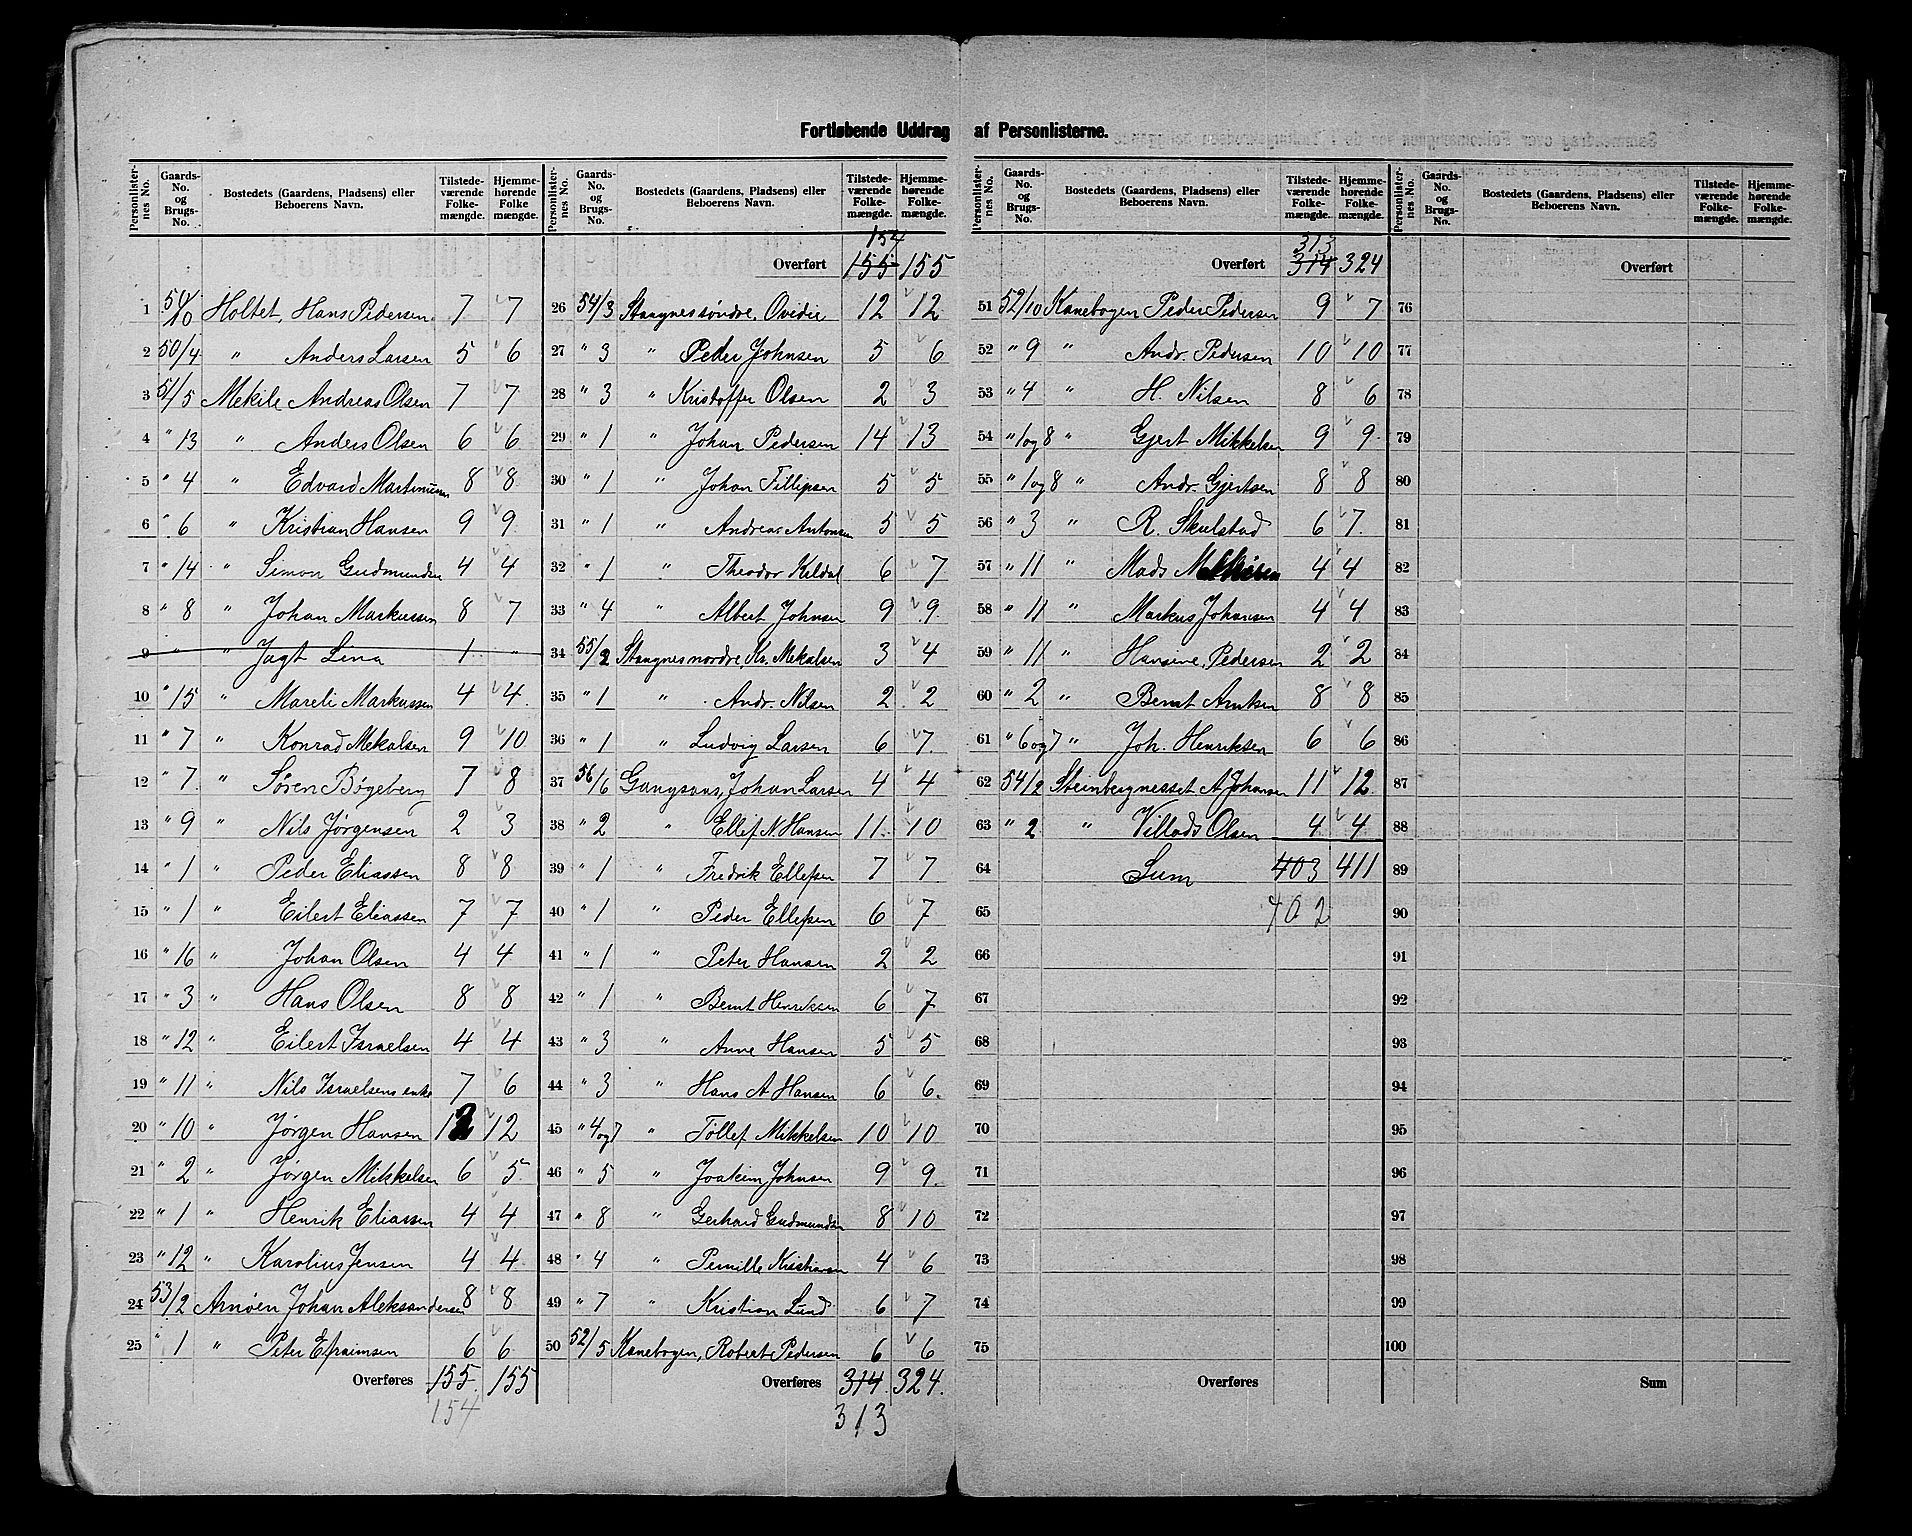 Fortløbende Uddrag af Personlisterne.
Personlisternes No. Gaards-No. og Brugs-No. Bostedets (Gaardens, Pladsens) eller Beboerens Navn. Tilstedeværende Folkemængde. Hjemmehørende Folkemængde.
154
Overført 155 155
1 51/10 Holtet, Hans Pedersen 7 7
2 50/4 " Anders Larsen 5 6
3 51/5 Mekile Andreas Olsen 7 7
4 " 13 " Anders Olsen 6 6
5 " 4 " Edvard Martinusen 8 8
6 " 6 " Kristian Hansen 9 9
7 " 14 " Simon Gudmundsen 4 4
8 " 8 " Johan Markussen 8 7
9 " " Jagt Lina 1 "
10 " 15 " Mareli Markussen 4 4
11 " 7 " Konrad Mekalsen 9 10
12 " 7 " Søren Bøgeberg 7 8
13 " 9 " Nils Jørgensen 2 3
14 " 1 " Peder Eliassen 8 8
15 " 1 " Eilert Eliassen 7 7
16 " 16 " Johan Olsen 4 4
17 " 3 " Hans Olsen 8 8
18 " 12 " Eilert Israelsen 4 4
19 " 11 " Nils Israelsens enke 7 6
20 " 10 " Jørgen Hansen 12 12
21 " 2 " Jørgen Mikkelsen 6 5
22 " 1 " Henrik Eliassen 4 4
23 " 12 " Karolius Jensen 4 4
24 53/2 Arnøen Johan Aleksandersen 8 8
25 " 1 " Peter Efraimsen 6 6
Overføres 155 155
154
26 54/3 Stangnes søndre, Ovidie 12 12
27 " 3 " Peder Johnsen 5 6
28 " 3 " Kristoffer Olsen 2 3
29 " 1 " Johan Pedersen 14 13
30 " 1 " Johan Fillipsen 5 5
31 " 1 " Andreas Antonsen 5 5
32 " 1 " Theodor Kildal 6 7
33 " 4 " Albert Johnsen 9 9
34 55/2 Stangnes nordre, Kr. Mekalsen 3 4
35 " 1 " Andr. Nilsen 2 2
36 " 1 " Ludvig Larsen 6 7
37 56/6 Gangsaas, Johan Larsen 4 4
38 " 2 " Ellef N. Hansen 11 10
39 " 1 " Fredrik Ellefsen 7 7
40 " 1 " Peder Ellefsen 6 7
41 " 1 " Peter Hansen 2 2
42 " 1 " Bernt Henriksen 6 7
43 " 3 " Anne Hansen 5 5
44 " 3 " Hans A Hansen 6 6
45 " 4 og 7 " Tollef Mikkelsen 10 10
46 " 5 " Joakim Johnsen 9 9
47 " 8 " Gerhard Gudmundsen 8 10
48 " 4 " Pernille Kristiansen 4 6
49 " 7 " Kristian Lund 6 7
50 52/5 Kanebogen, Robert Pedersen 6 6
Overføres 314 324
313
313
Overført 314 324
51 52/10 Kanebogen Peder Pedersen 9 7
52 " 9 " Andr. Pedersen 10 10
53 " 4 " H. Nilsen 8 6
54 " 1 og 8 " Gjert Mikkelsen 9 9
55 " 1 og 8 " Andr. Gjertsen 8 8
56 " 3 " R. Skulstad 6 7
57 " 11 " Mads 4 4
58 " 11 " Markus Johansen 4 4
59 " 11 " Hansine Pedersen 2 2
60 " 2 " Bernt Arntsen 8 8
61 " 6 og 7 " Joh. Henriksen 6 6
62 54/2 Steinbergnesset A Johansen 11 12
63 " 2 " Villads Olsen 4 4
64 Sum 403 411
65 402
66
67
68
69
70
71
72
73
74
75
Overføres
Overført
76
77
78
79
80
81
82
83
84
85
86
87
88
89
90
91
92
93
94
95
96
97
98
99
100
Sum